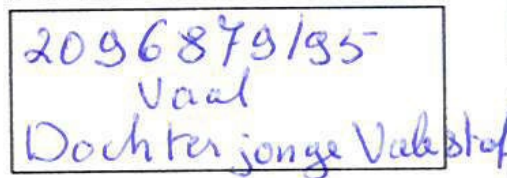 2096879/95
Vaal
Dochter jonge Valestaf